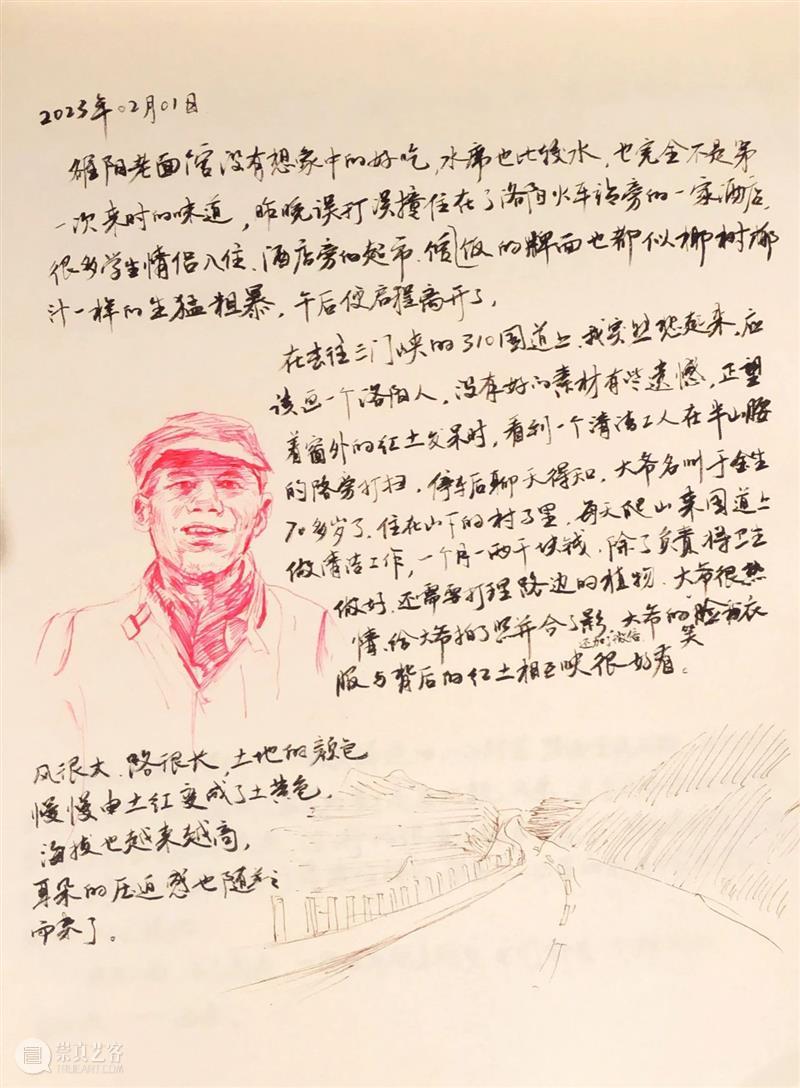 2023年02月01日
雒阳老面馆没有想象中的好吃,水席也比较水,也完全不是第
一次来时的味道,昨晚误打误撞住在了洛阳火车站旁的一家酒店,
很多学生情侣入住、酒店旁的超市、饭的牌面也都似椰树椰
汁一样的生猛粗暴,午后便启程离开了,
在去往三门峡的310国道上,我突然想起来,应
该画一个洛阳人,没有好的素材有些遗憾,正望
着窗外的红土发呆时,看到一个清洁工人在半山腰
的路旁打扫,停车后聊天得知,大爷名叫于金生
70多岁了,住在山下的村子里,每天爬山来国道上
做清洁工作,一个月一两千块钱,除了负责将卫生
做好,还需要打理路边的植物,大爷很热
情,给大爷拍了照并合了影,大爷的脸和衣
还加了微信
笑
服与背后的红土相互映很好看。
风很大、路很长,土地的颜色
慢慢由土红变成了土黄色,
海拔也越来越高,
耳朵的压迫感也随之
而来了。
崇真艺客
TRUEART.COM